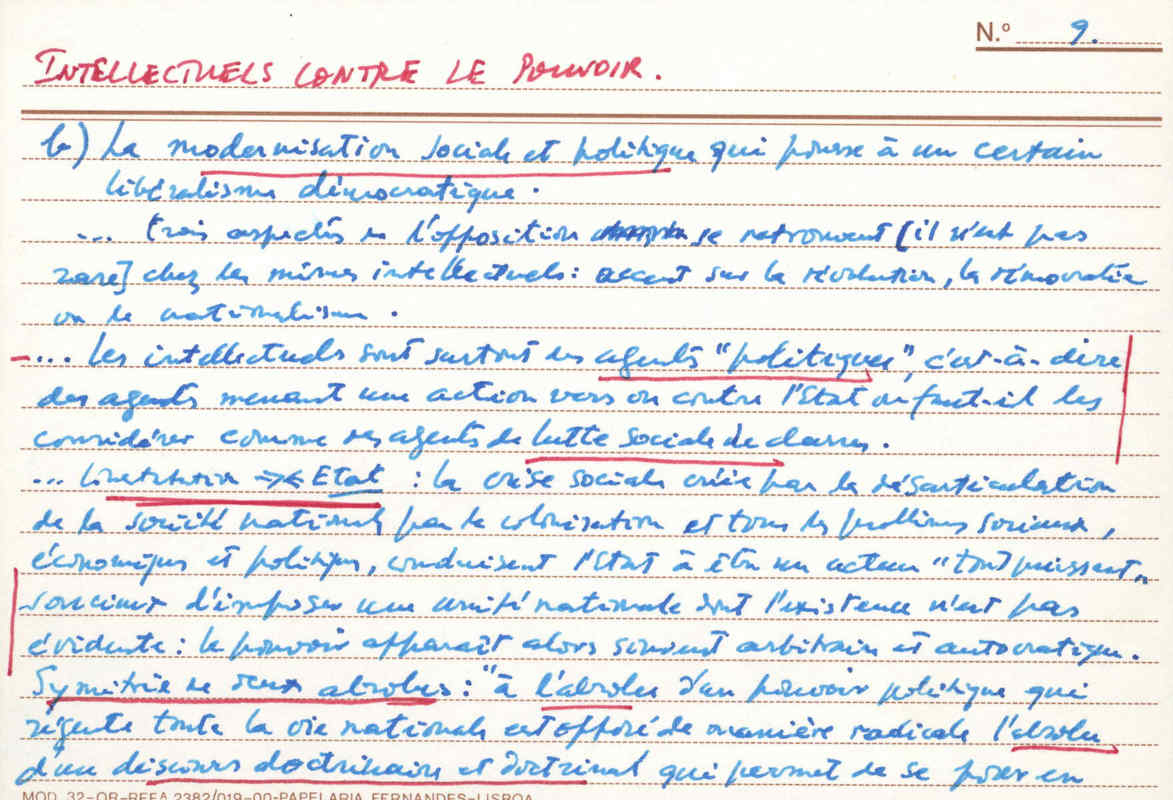 N.º 9.
INTELLECTUELS CONTRE LE POUVOIR.
b) La modernisation sociale et politique qui pousse à un certain
libéralisme démocratique.
... trois aspects de l'opposition se retrouvent [il n'est pas
rare] chez les mêmes intellectuels : accent sur la révolution, la démocratie
ou le nationalisme.
-... Les intellectuels sont surtout des agents "politiques", c'est-à-dire
des agents menant une action vers ou contre l'Etat ou faut-il les
considérer comme des agents de lutte sociale de classes.
... →← Etat : la crise sociale créée par la désarticulation
de la société nationale par la colonisation et tous les problèmes sociaux,
économiques et politiques, conduisent l'Etat à être un acteur "tout puissant"
soucieux d'imposer une unité nationale dont l'existence n'est pas
évidente : le pouvoir apparaît alors souvent arbitraire et autocratique.
Symétrie de deux absolus : "à l'absolu d'un pouvoir politique qui
régente toute la vie nationale est opposé de manière radicale l'absolu
d'un discours doctrinaire et doctrinal qui permet de se poser en
MOD. 32-OR-REFA 2382/019-00-PAPELARIA FERNANDES-LISBOA